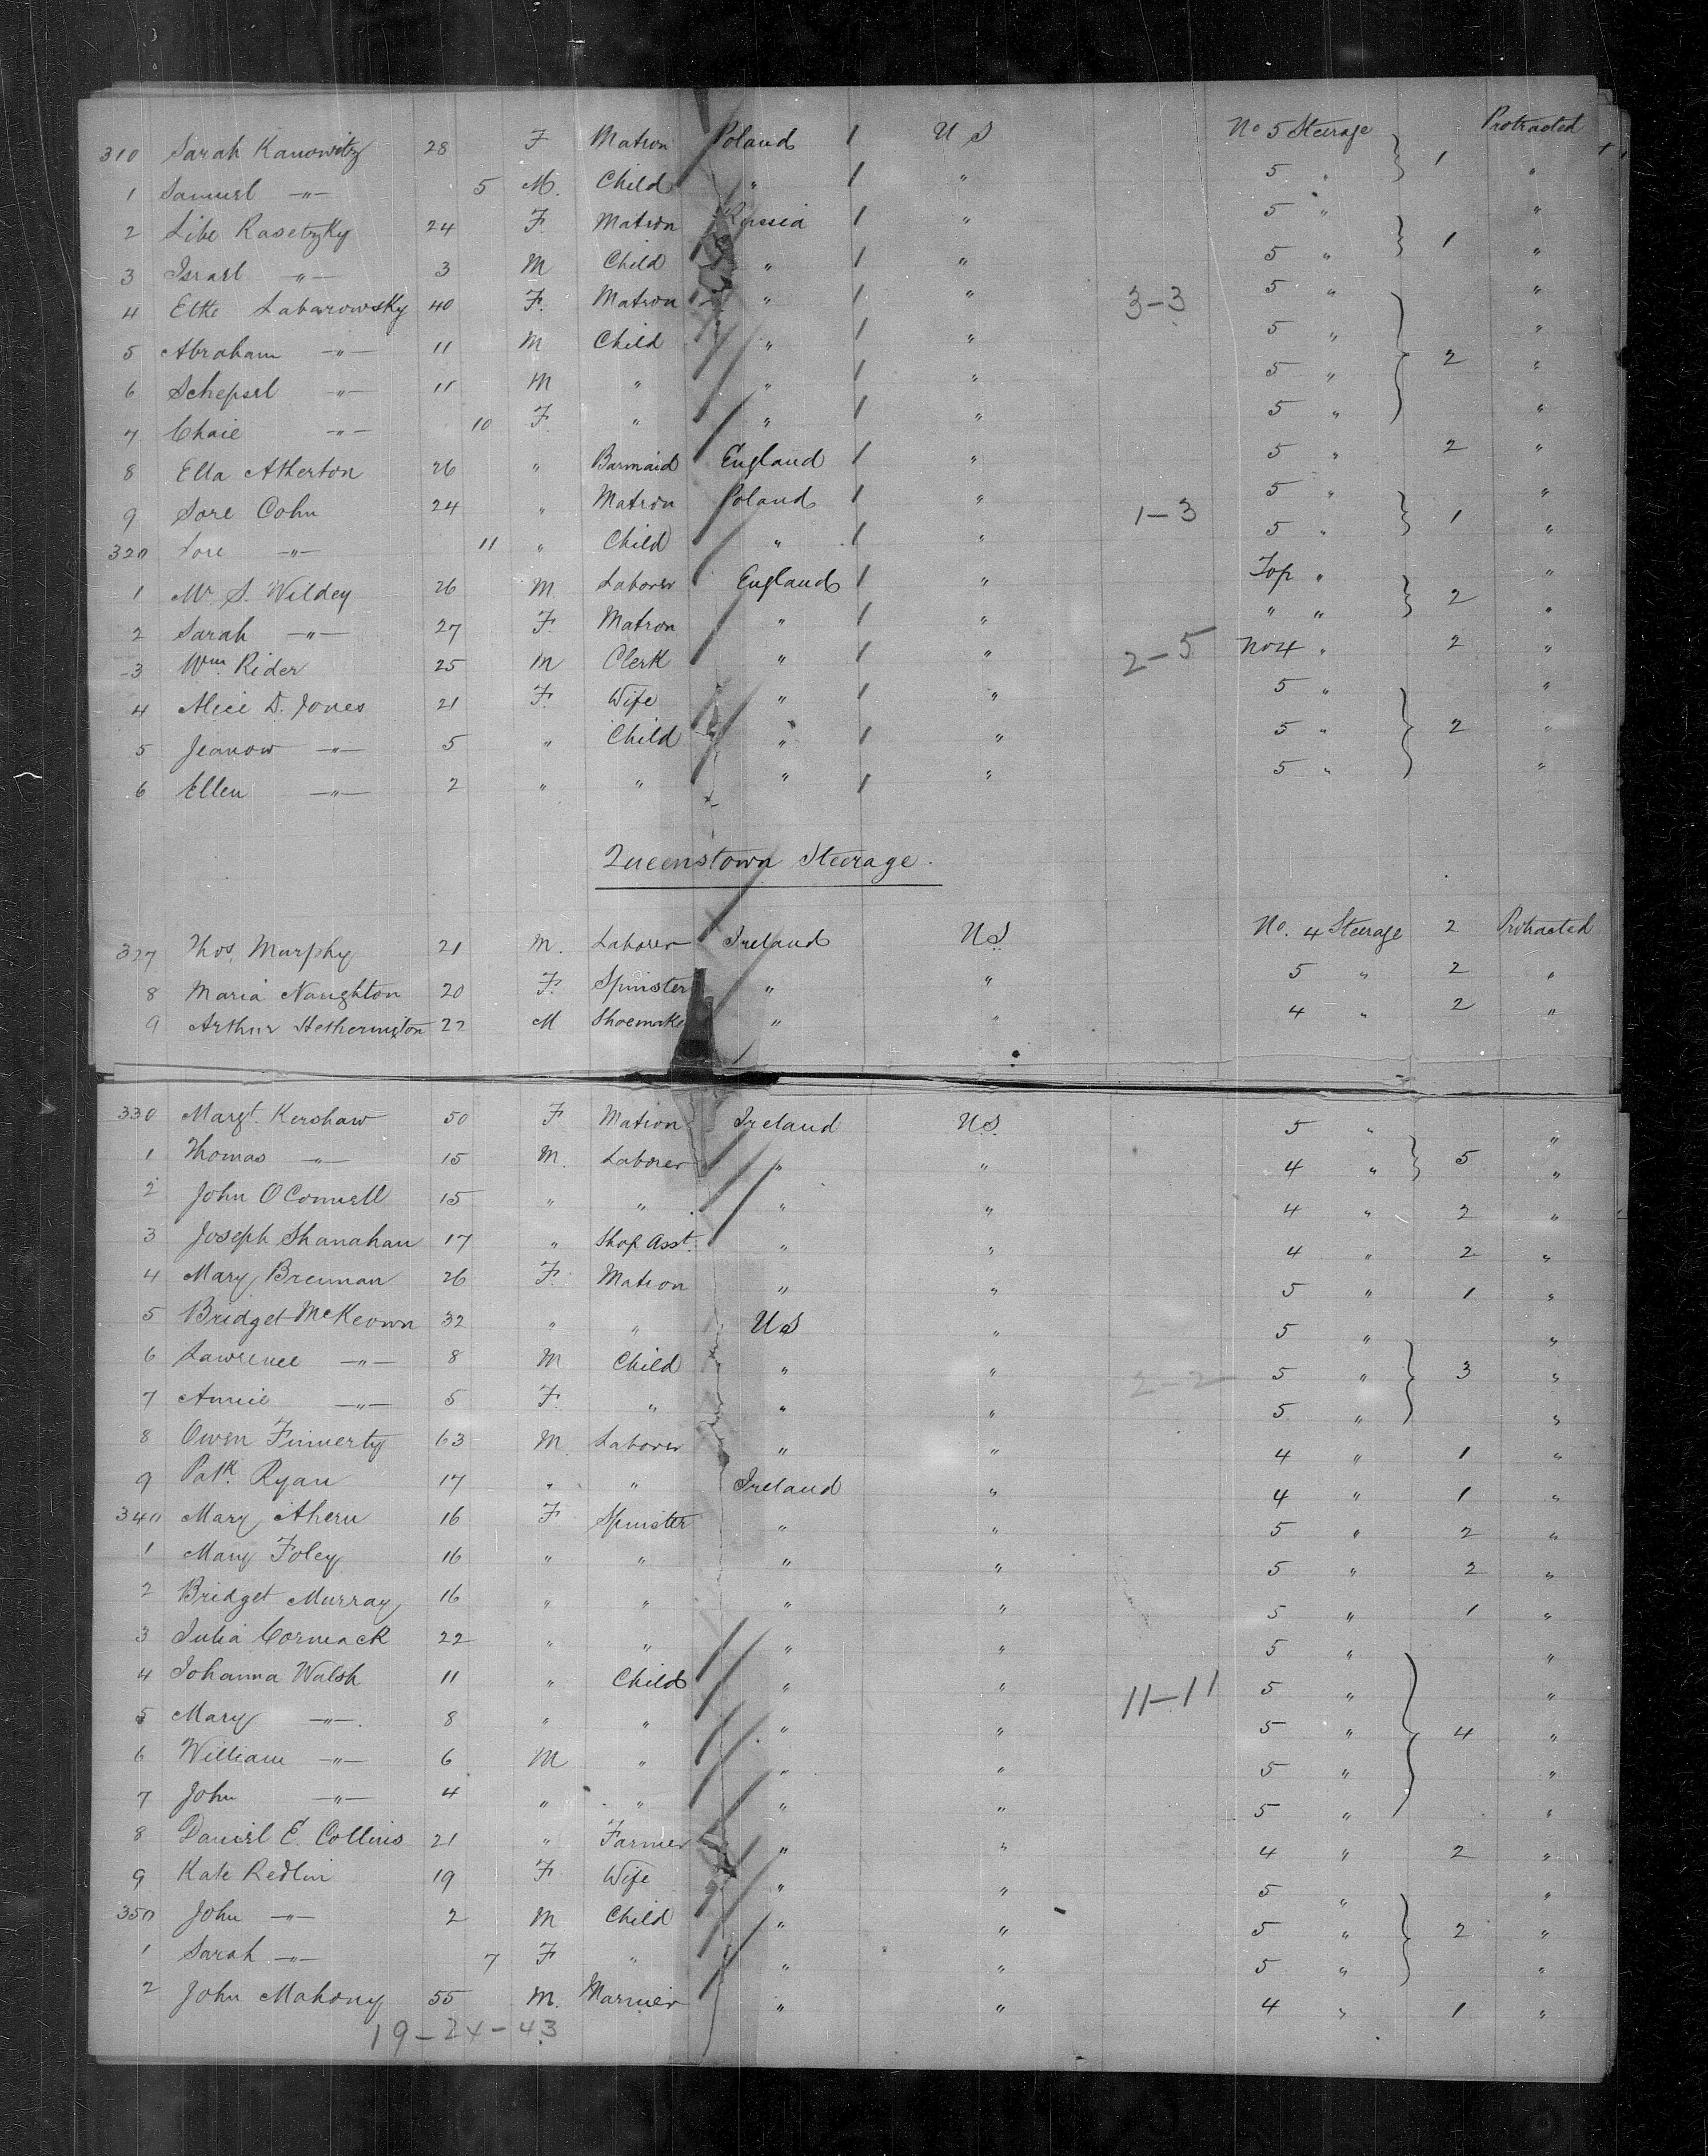 310 Sarah Kanowitz 28 F Matron Poland 1 U S No 5 Steerage 1 Protracted
1 Samuel —"— 5 M. Child " 1 " 5 " "
2 Libe Rasetzky 24 F. Matron Russia 1 " 5 " 1 "
3 Israel —"— 3 M Child " 1 " 5 " "
4 Etke Labarowsky 40 F. Matron " 1 " 3-3 5 " "
5 Abraham —"— 11 M Child " 1 " 5 " 2 "
6 Schepsel —"— 11 M " " 1 " 5 " "
7 Chaie —"— 10 F. " " 1 " 5 " "
8 Ella Atherton 26 " Barmaid England 1 " 5 " 2 "
9 Sore Cohn 24 " Matron Poland 1 " 1-3 5 " 1 "
320 Lore —"— 11 " Child " 1 " 5 " "
1 Mr. S. Wildey 26 M Laborer England 1 " Top " 2 "
2 Sarah —"— 27 F. Matron " 1 " " " "
3 Wm. Rider 25 M Clerk " 1 " 2-5 No 4 " 2 "
4 Alice D. Jones 21 F. Wife " 1 " 5 " "
5 Jeanow —"— 5 " Child " 1 " 5 " 2 "
6 Ellen —"— 2 " " " 1 " 5 " "
Queenstown Steerage.
327 Thos. Murphy 21 M. Laborer Ireland U.S No. 4 Steerage 2 Protracted
8 Maria Naughton 20 F. Spinster " " 5 " 2 "
9 Arthur Hetherington 22 M Shoemake " " 4 " 2 "
330 Margt. Kershaw 50 F Matron Ireland U.S 5 " "
1 Thomas —"— 15 M. Laborer " " 4 " 5 "
2 John O'Connell 15 " " " " 4 " 2 "
3 Joseph Shanahan 17 " Shop Asst. " " 4 " 2 "
4 Mary Brennan 26 F. Matron " " 5 " 1 "
5 Bridget McKeown 32 " " U.S " 5 " "
6 Lawrence —"— 8 M Child " " 2-2 5 " 3 "
7 Annie —"— 5 F. " " " 5 " "
8 Owen Finnerty 63 M. Laborer " " 4 " 1 "
9 Patk. Ryan 17 " " Ireland " 4 " 1 "
340 Mary Ahern 16 F Spinster " " 5 " 2 "
1 Mary Foley 16 " " " " 5 " 2 "
2 Bridget Murray 16 " " " " 5 " 1 "
3 Julia Cormack 22 " " " " 5 " "
4 Johanna Walsh 11 " Child " " 11-11 5 " "
5 Mary —"— 8 " " " " 5 " 4 "
6 William —"— 6 M " " " 5 " "
7 John —"— 4 " " " " 5 " "
8 Daniel E. Collins 21 " Farmer " " 4 " 2 "
9 Kate Redlin 19 F Wife " " 5 " "
350 John —"— 2 M Child " " 5 " 2 "
1 Sarah —"— 7 F " " " 5 " "
2 John Mahony 55 M. " " 4 " 1 "
19-24-43